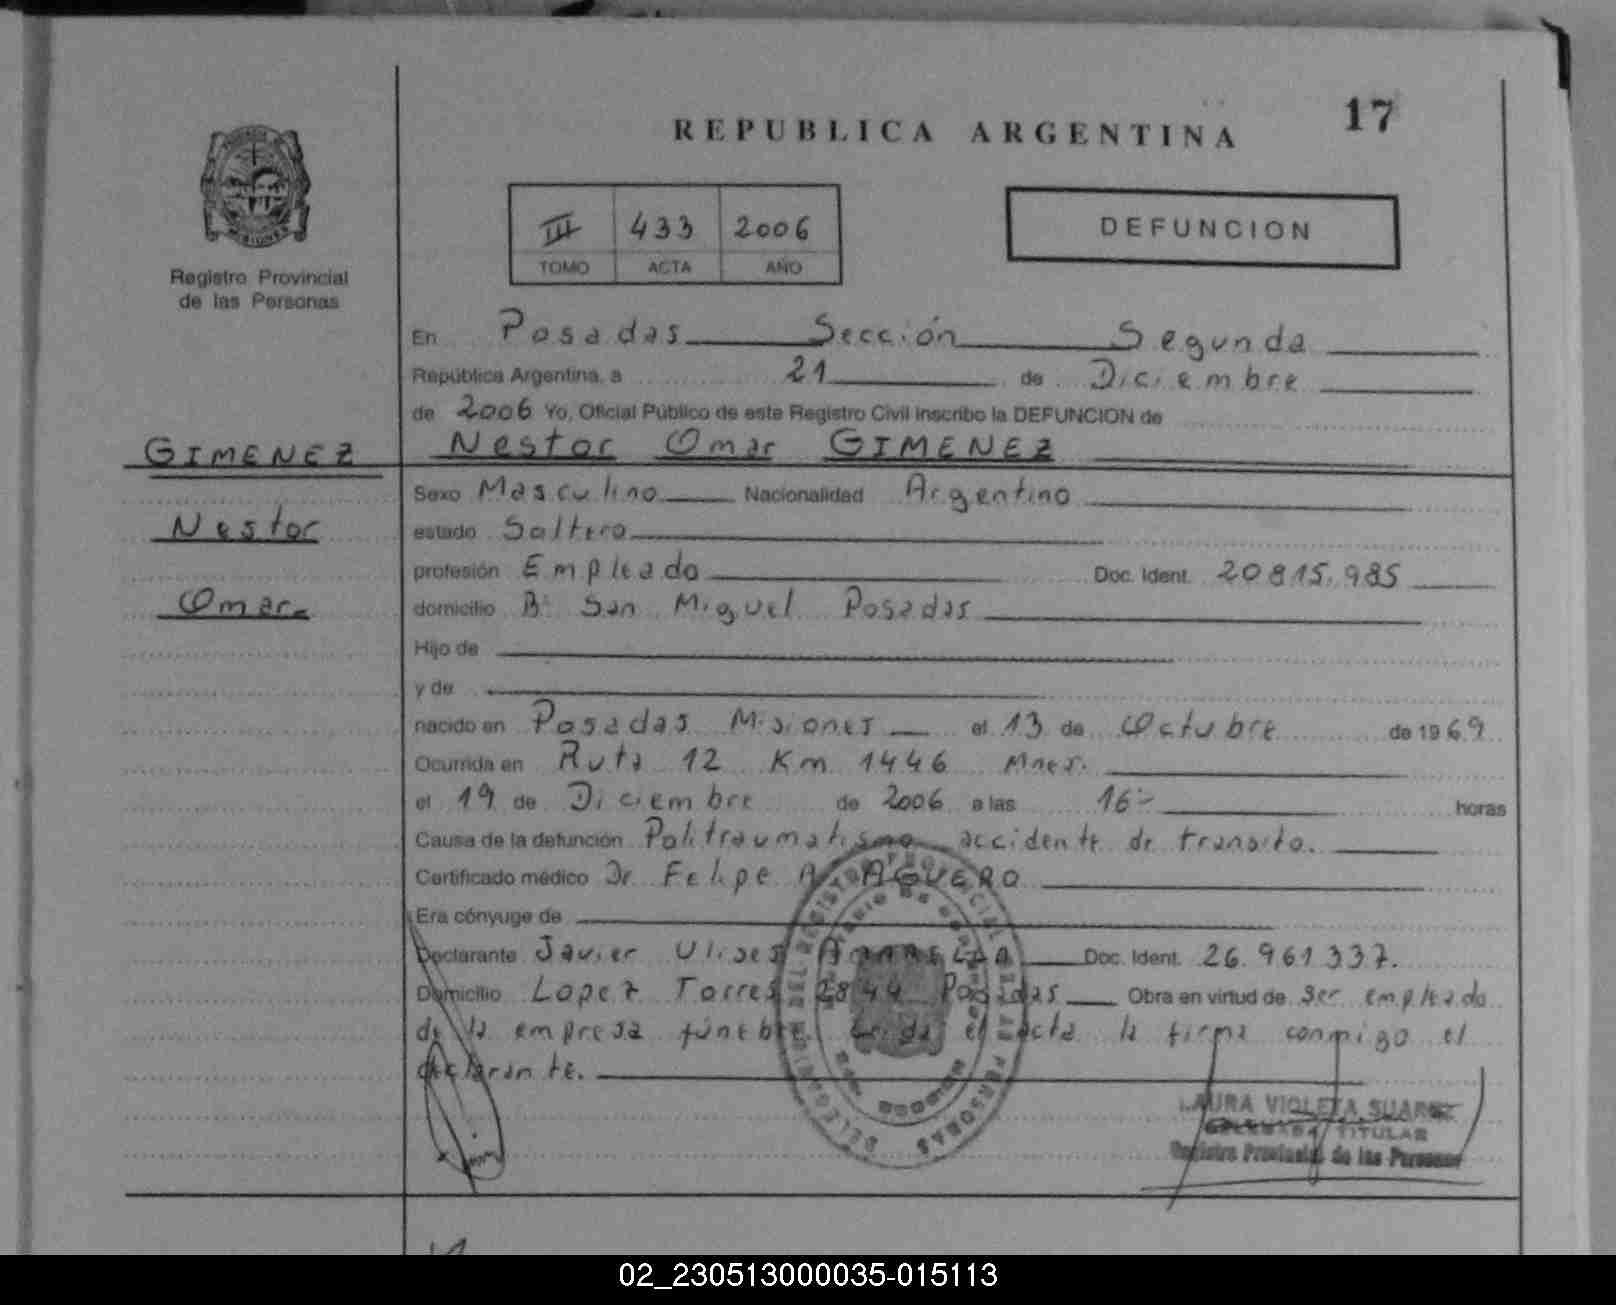 17
REPUBLICA ARGENTINA
III 433 2006
TOMO ACTA AÑO
DEFUNCION
Registro Provincial
de las Personas
En Posadas Sección Segunda
República Argentina, a 21 de Diciembre
de 2006 Yo, Oficial Público de este Registro Civil inscribo la DEFUNCION de
GIMENEZ
Nestor Omar GIMENEZ
Sexo Masculino Nacionalidad Argentino
Nestor
estado Soltero
profesión Empleado Doc. Ident. 20.815.985
Omar
domicilio Bº San Miguel Posadas
Hijo de
y de
nacido en Posadas Misiones el 13 de Octubre de 1969
Ocurrida en Ruta 12 Km 1446 Mnes.
el 19 de Diciembre de 2006 a las 16 horas
Causa de la defunción Politraumatismo accidente de transito.
Certificado médico Dr. Felipe A. AGUERO
Era cónyuge de
Declarante Javier Ulises Doc. Ident. 26.961.337.
Domicilio Lopez Torres 2844 Posadas Obra en virtud de ser empleado
de la empresa fúnebre. Leida el acta la firma conmigo el
declarante.
LAURA VIOLETA SUAREZ
DELEGADA TITULAR
Registro Provincial de las Personas
02_230513000035-015113